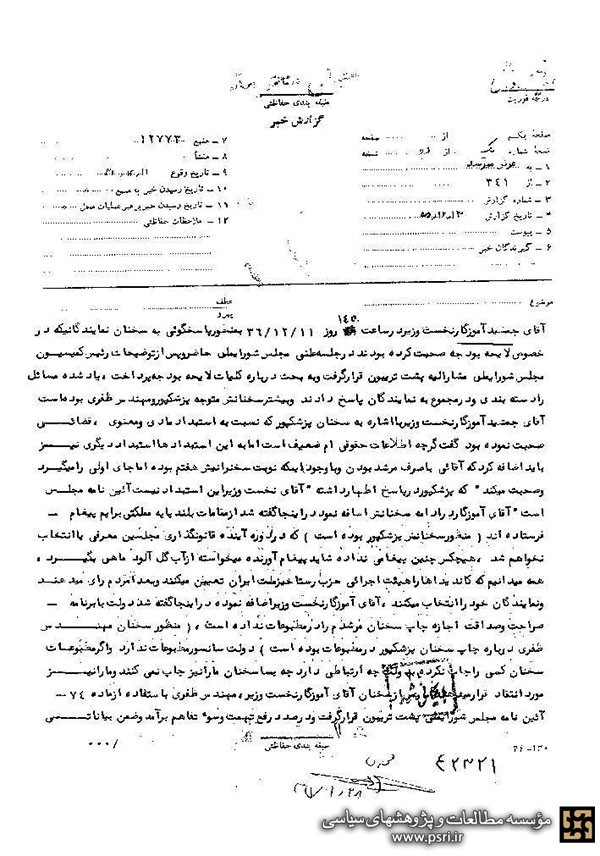 درجه فوریت
طبقه بندی حفاظتی
گزارش خبر
صفحه یکم از صفحه
نسخه شماره یک از نسخه
۱ ـ به
۲ ـ از ۳۴۱
۳ ـ شماره گزارش
۴ ـ تاریخ گزارش
۵ ـ پیوست
۶ ـ گیرندگان خبر
۷ ـ منبع ۱۲۷۷۳
۸ ـ منشأ
۹ ـ تاریخ وقوع
۱۰ ـ تاریخ رسیدن خبر به منبع
۱۱ ـ تاریخ رسیدن خبر برهبر عملیات محل
۱۲ ـ ملاحظات حفاظتی
موضوع
عطف
پیرو
۱۴۵۰
آقای جمشید آموزگار نخست وزیر در ساعت روز ۳۶/۱۲/۱۱ بمنظور پاسخگوئی به سخنان نمایندگانیکه در
خصوص لایحه بودجه صحبت کرده بودند در جلسه علنی مجلس شورایملی حاضر و پس از توضیحات رئیس کمیسیون
مجلس شورایملی مشارالیه پشت تریبون قرار گرفت و به بحث درباره کلیات لایحه بودجه پرداخت، یاد شده مسائل
را دسته بندی و در مجموع به نمایندگان پاسخ دادند و بیشتر سخنانش متوجه پزشکپور و مهندس ظفری بوده است
آقای جمشید آموزگار نخست وزیر با اشاره به سخنان پزشکپور که نسبت به استبداد مادی و معنوی ، قضائی
صحبت نموده بود گفت گرچه اطلاعات حقوقی ام ضعیف است اما به این استبدادها استبداد دیگری نیز
باید اضافه کرد که آقائی با دو حرف مرشد بودن و با وجود اینکه نوبت سخنرانیش هفتم بوده اما جای اولی را میگیرد
وصحبت میکند " که پزشکپور در پاسخ اظهار داشته " آقای نخست وزیر این استبداد نیست آئین نامه مجلس
است " آقای آموزگار در ادامه سخنانش اضافه نمود در اینجا گفته شد از مقامات بلند پایه مملکتی برایم پیغام
فرستاده اند ( منظور سخنرانیش پزشکپور بوده است ) که در دوره آینده قانونگذاری مجلسین معرفی یا انتخاب
نخواهم شد ، هیچکس چنین پیغامی نداده شاید پیغام آورنده میخواسته از آب گل آلود ماهی بگیرد ،
همه میدانیم که کاندیداها را هیئت اجرائی حزب رستاخیز ملت ایران تعیین میکنند و بعد امردم رای میدهند
و نمایندگان خود را انتخاب میکنند ، آقای آموزگار نخست وزیر اضافه نمود در اینجا گفته شد دولت با برنامه
صراحت و صداقت اجازه چاپ سخنان مرشدم را در مطبوعات نداده است ، ( منظور سخنان مهندس
ظفری درباره چاپ سخنان پزشکپور در مطبوعات بوده است ) دولت سانسور مطبوعات ندارد و اگر مطبوعات
سخنان کسی را چاپ نکرده به دولت چه ارتباطی دارد چه بسا سخنان ما را نیز چاپ نمی کنند و ما را نیز
مورد انتقاد قرار میدهند پس از سخنان آقای آموزگار نخست وزیر ، مهندس ظفری با استفاده از ماده ۷۴
آئین نامه مجلس شورایملی پشت تریبون قرار گرفت و در صدد رفع تهمت و سوء تفاهم برآمد و ضمن بیاناتی
طبقه بندی حفاظتی
/ ۰۰۰
۴۲۳۲۱
مؤسسه مطالعات و پژوهشهای سیاسی
www.psri.ir